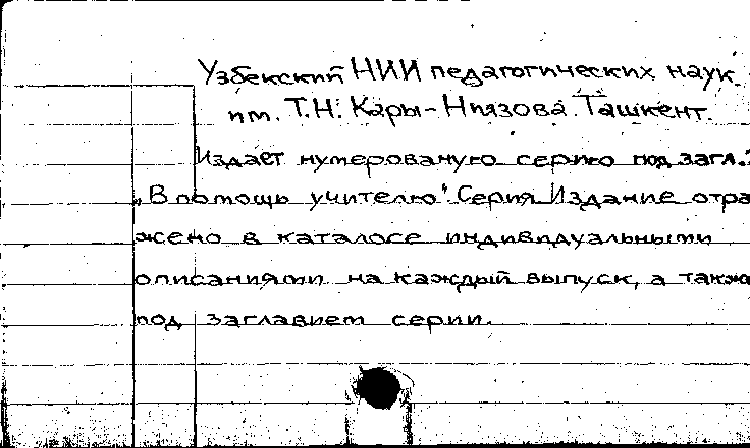 Узбекский НИИ педагогических наук
им. Т.Н. Кары-Ниязова. Ташкент.
Издает нумерованую серию под загл.:
„В помощь учителю" Серия Издание отра
жено в каталоге индивидуальными
описаниями на каждый выпуск, а также
под заглавием серии.